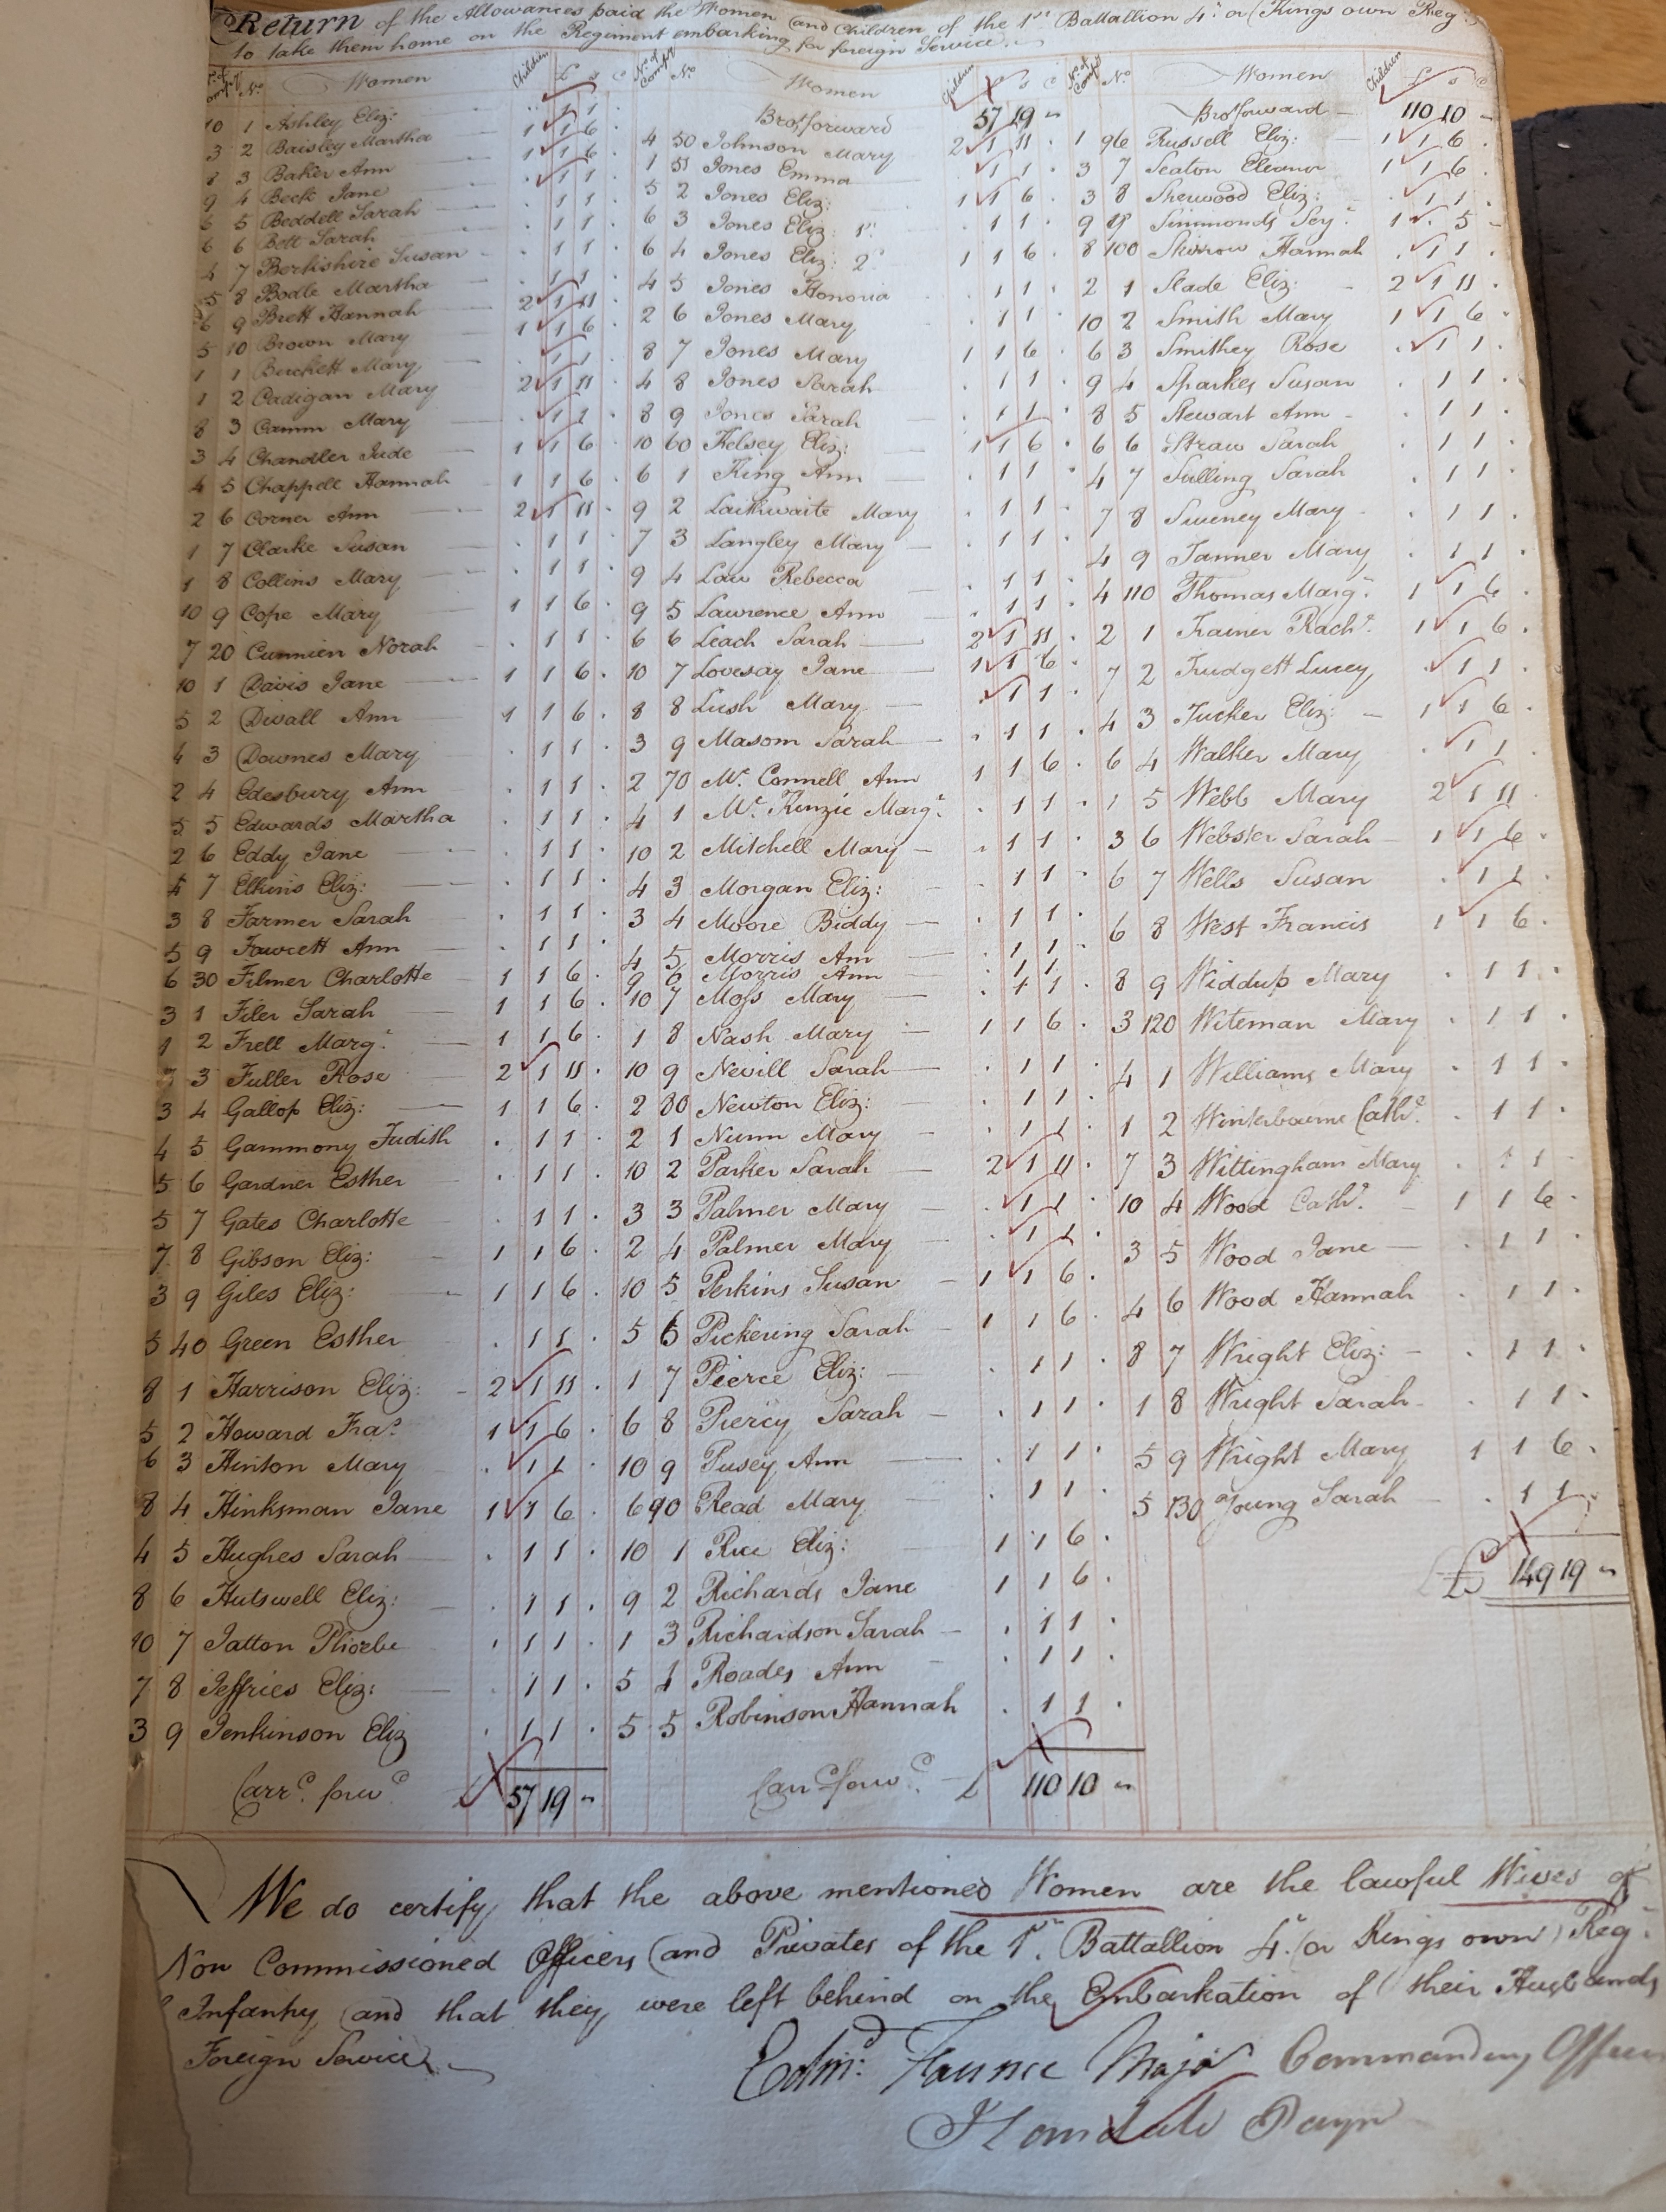 Return of the Allowances paid the Women and Children of the 1st Battallion 4th or (Kings own Regt)
to take them home on the Regiment embarking for foreign Service.
No. of Compy No. Women Children £ s d
10 1 Ashley Eliz: 1 1
3 2 Baisley Martha 1 1 6
8 3 Baker Ann 1 1 6
9 4 Beck Jane 1 1
6 5 Beddell Sarah 1 1
6 6 Bell Sarah 1 1
4 7 Berkishire Susan 1 1
5 8 Bodle Martha 1 1
6 9 Brett Hannah 2 1 11
5 10 Brown Mary 1 1 6
1 1 Burkett Mary 1 1
1 2 Cadigan Mary 2 1 11
8 3 Camm Mary 1 1
3 4 Chandler Jude 1 1 6
4 5 Chappell Hannah 1 1 6
2 6 Corner Ann 2 1 11
1 7 Clarke Susan 1 1
1 8 Collins Mary 1 1
10 9 Cope Mary 1 1 6
7 20 Cunnien Norah 1 1
10 1 Davis Jane 1 1 6
5 2 Divall Ann 1 1 6
4 3 Downes Mary 1 1
2 4 Edesbury Ann 1 1
5 5 Edwards Martha 1 1
2 6 Eddy Jane 1 1
4 7 Elkins Eliz: 1 1
3 8 Farmer Sarah 1 1
5 9 Fawcett Ann 1 1
6 30 Filmer Charlotte 1 1 6
3 1 Filer Sarah 1 1 6
1 2 Frell Margt 1 1 6
3 Fuller Rose 2 1 11
3 4 Gallop Eliz: 1 1 6
4 5 Gammony Judith 1 1
5 6 Gardner Esther 1 1
5 7 Gates Charlotte 1 1
7 8 Gibson Eliz: 1 1 6
3 9 Giles Eliz: 1 1 6
5 40 Green Esther 1 1
8 1 Harrison Eliz: 2 1 11
5 2 Howard Fras 1 1 6
6 3 Hinton Mary 1 1
8 4 Hinksman Jane 1 1 6
4 5 Hughes Sarah 1 1
8 6 Hutswell Eliz: 1 1
10 7 Jatton Phoebe 1 1
7 8 Jeffries Eliz: 1 1
3 9 Jenkinson Eliz 1 1
Carrd forwd £ 57 19 "
No. of Compy No. Women Children £ s d
Brot forward 57 19 "
4 50 Johnson Mary 2 1 11
1 51 Jones Emma 1 1
5 2 Jones Eliz: 1 1 6
6 3 Jones Eliz: 1st 1 1
6 4 Jones Eliz: 2d 1 1 6
4 5 Jones Honoria 1 1
2 6 Jones Mary 1 1
8 7 Jones Mary 1 1 6
4 8 Jones Sarah 1 1
8 9 Jones Sarah 1 1
10 60 Kelsey Eliz: 1 1 6
6 1 King Ann 1 1
9 2 Laithwaite Mary 1 1
7 3 Langley Mary 1 1
9 4 Law Rebecca 1 1
9 5 Lawrence Ann 1 1
6 6 Leach Sarah 2 1 11
10 7 Lovesay Jane 1 1 6
8 8 Lush Mary 1 1
3 9 Masom Sarah 1 1
2 70 Mc Connell Ann 1 1 6
4 1 Mc Kenzie Margt 1 1
10 2 Mitchell Mary 1 1
4 3 Morgan Eliz: 1 1
3 4 Moore Biddy 1 1
4 5 Morris Ann 1 1
9 6 Morris Ann 1 1
10 7 Moss Mary 1 1
1 8 Nash Mary 1 1 6
10 9 Nevill Sarah 1 1
2 80 Newton Eliz: 1 1
2 1 Nunn Mary 1 1
10 2 Parker Sarah 2 1 11
3 3 Palmer Mary 1 1
2 4 Palmer Mary 1 1
10 5 Perkins Susan 1 1 6
5 6 Pickering Sarah 1 1 6
1 7 Pierce Eliz: 1 1
6 8 Piercy Sarah 1 1
10 9 Pusey Ann 1 1
6 90 Read Mary 1 1
10 1 Rice Eliz: 1 1 6
9 2 Richards Jane 1 1 6
1 3 Richardson Sarah 1 1
5 4 Roades Ann 1 1
5 5 Robinson Hannah 1 1
Carrd forwd £ 110 10 "
No. of Compy No. Women Children £ s d
Brot forward 110 10 "
1 96 Russell Eliz: 1 1 6
3 7 Seaton Eleanor 1 1 6
3 8 Sherwood Eliz: 1 1
9 99 Simmonds 1 5
8 100 Skirrow Hannah 1 1
2 1 Slade Eliz: 2 1 11
10 2 Smith Mary 1 1 6
6 3 Smithey Rose 1 1
9 4 Sparkes Susan 1 1
8 5 Stewart Ann 1 1
6 6 Straw Sarah 1 1
4 7 Sulling Sarah 1 1
7 8 Sweney Mary 1 1
4 9 Tanner Mary 1 1
4 110 Thomas Margt 1 1 6
2 1 Trainer Rachl 1 1 6
7 2 Trudgett Lucey 1 1
4 3 Tucker Eliz: 1 1 6
6 4 Walker Mary 1 1
1 5 Webb Mary 2 1 11
3 6 Webster Sarah 1 1 6
6 7 Wells Susan 1 1
6 8 West Francis 1 1 6
8 9 Widdup Mary 1 1
3 120 Witeman Mary 1 1
4 1 Williams Mary 1 1
1 2 Winterbourne Cathe 1 1
7 3 Wittingham Mary 1 1
10 4 Wood Cathe 1 1 6
3 5 Wood Jane 1 1
4 6 Wood Hannah 1 1
8 7 Wright Eliz: 1 1
1 8 Wright Sarah 1 1
5 9 Wright Mary 1 1 6
5 130 Young Sarah 1 1
£ 149 19 "
We do certify that the above mentioned Women are the lawful Wives of
Non Commissioned Officers and Privates of the 1st Battallion 4th (or Kings own) Regt
Infantry and that they were left behind on the Embarkation of their Husbands
Foreign Service
Edmd Faunce Major Commanding Officer